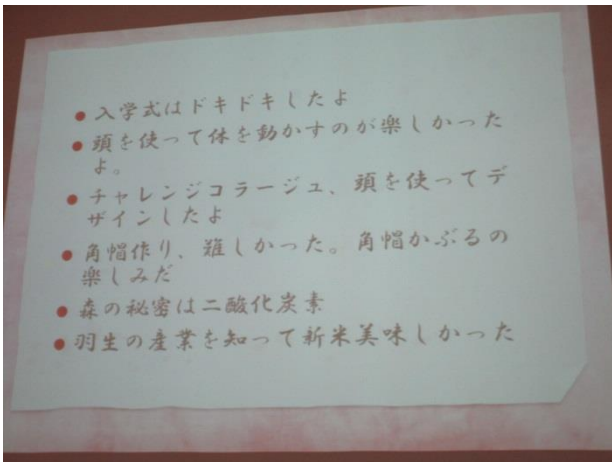 ● 入学式はドキドキしたよ
● 頭を使って体を動かすのが楽しかった
よ。
● チャレンジコラージュ、頭を使ってデ
ザインしたよ
● 角帽作り、難しかった。角帽かぶるの
楽しみだ
● 森の秘密は二酸化炭素
● 羽生の産業を知って新米美味しかった